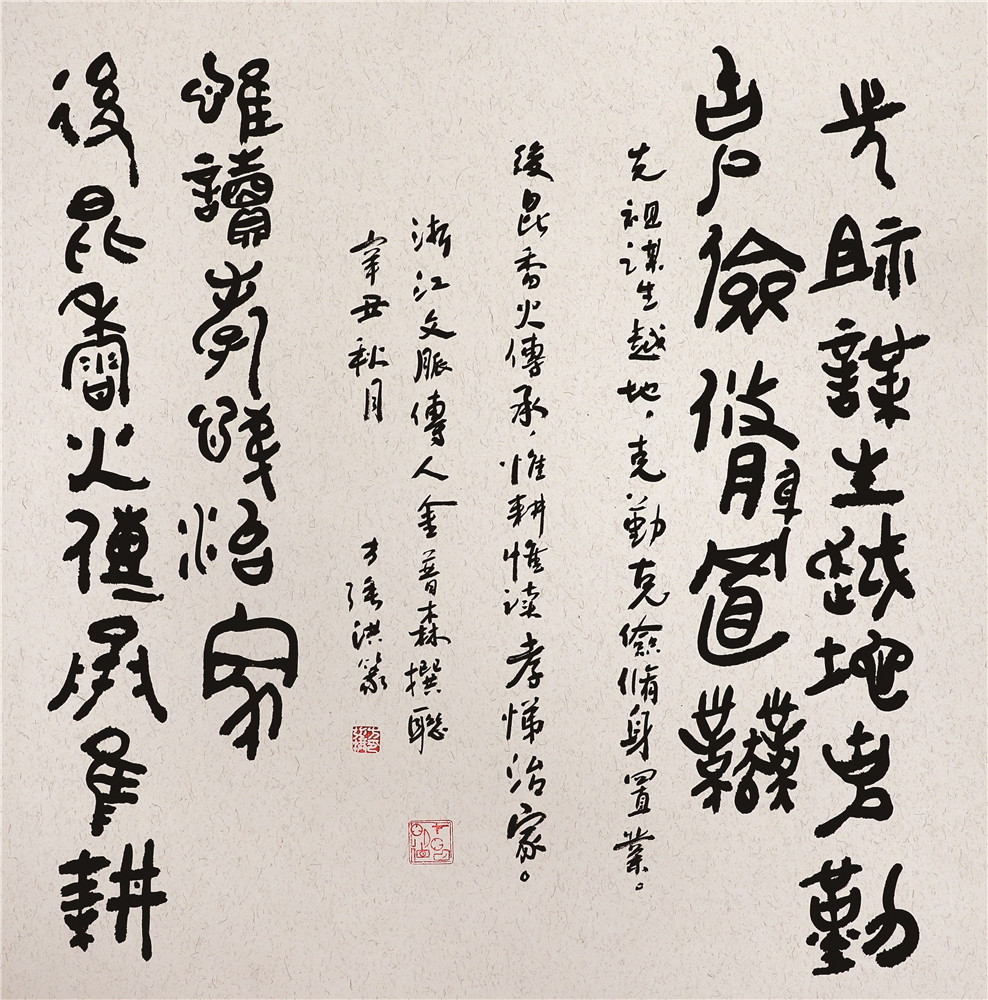 先祖謀生越地克勤
克儉脩身置業
先祖谋生越地，克勤克儉脩身置業。
後昆香火傳承，惟耕惟读孝悌治家。
浙江文脈傳人金普森撰聯
辛丑秋月 方 洪篆
後昆香火傳承惟耕
惟讀孝悌治家